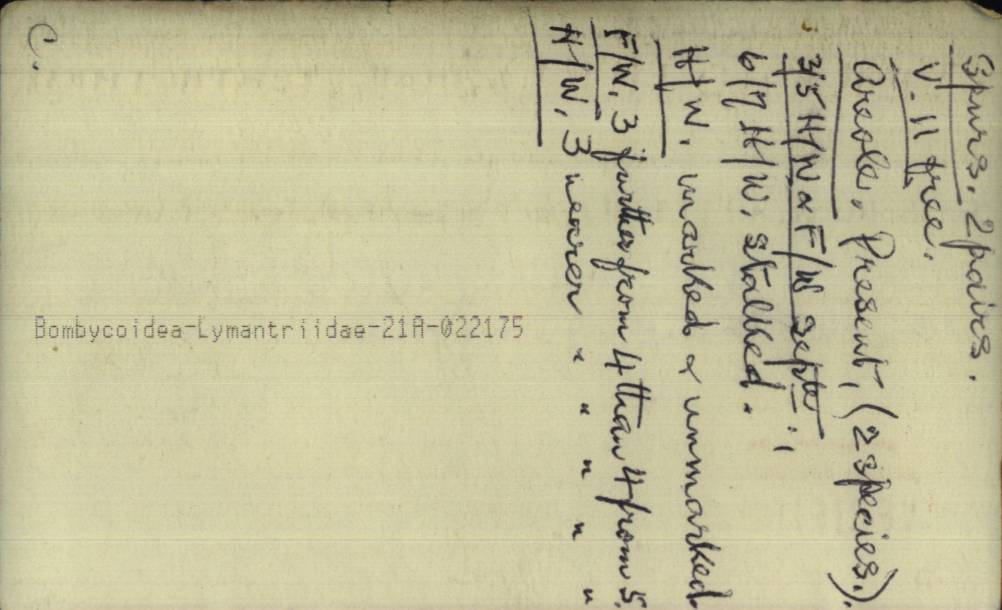 Spurs, 2 pairs.
V. 11 free.
Areole, Present, (2 species).
3/5 H/W & F/W septe.;
6/7 H/W, stalked.
H/W, marked & unmarked.
F/W, 3 further from 4 than 4 from 5.
H/W, 3 nearer " " " " "
C.
Bombycoidea-Lymantriidae-21A-022175